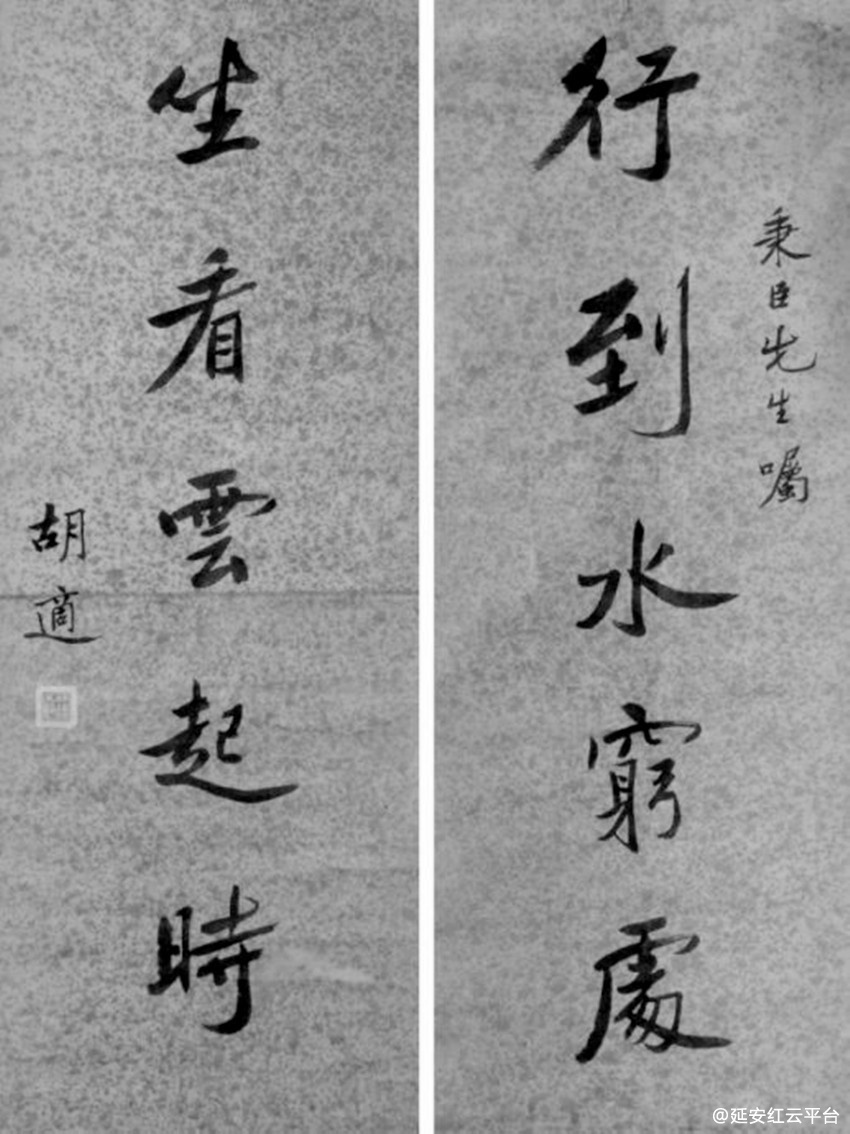 行到水窮處
秉臣先生囑
坐看雲起時
胡適
@延安红云平台